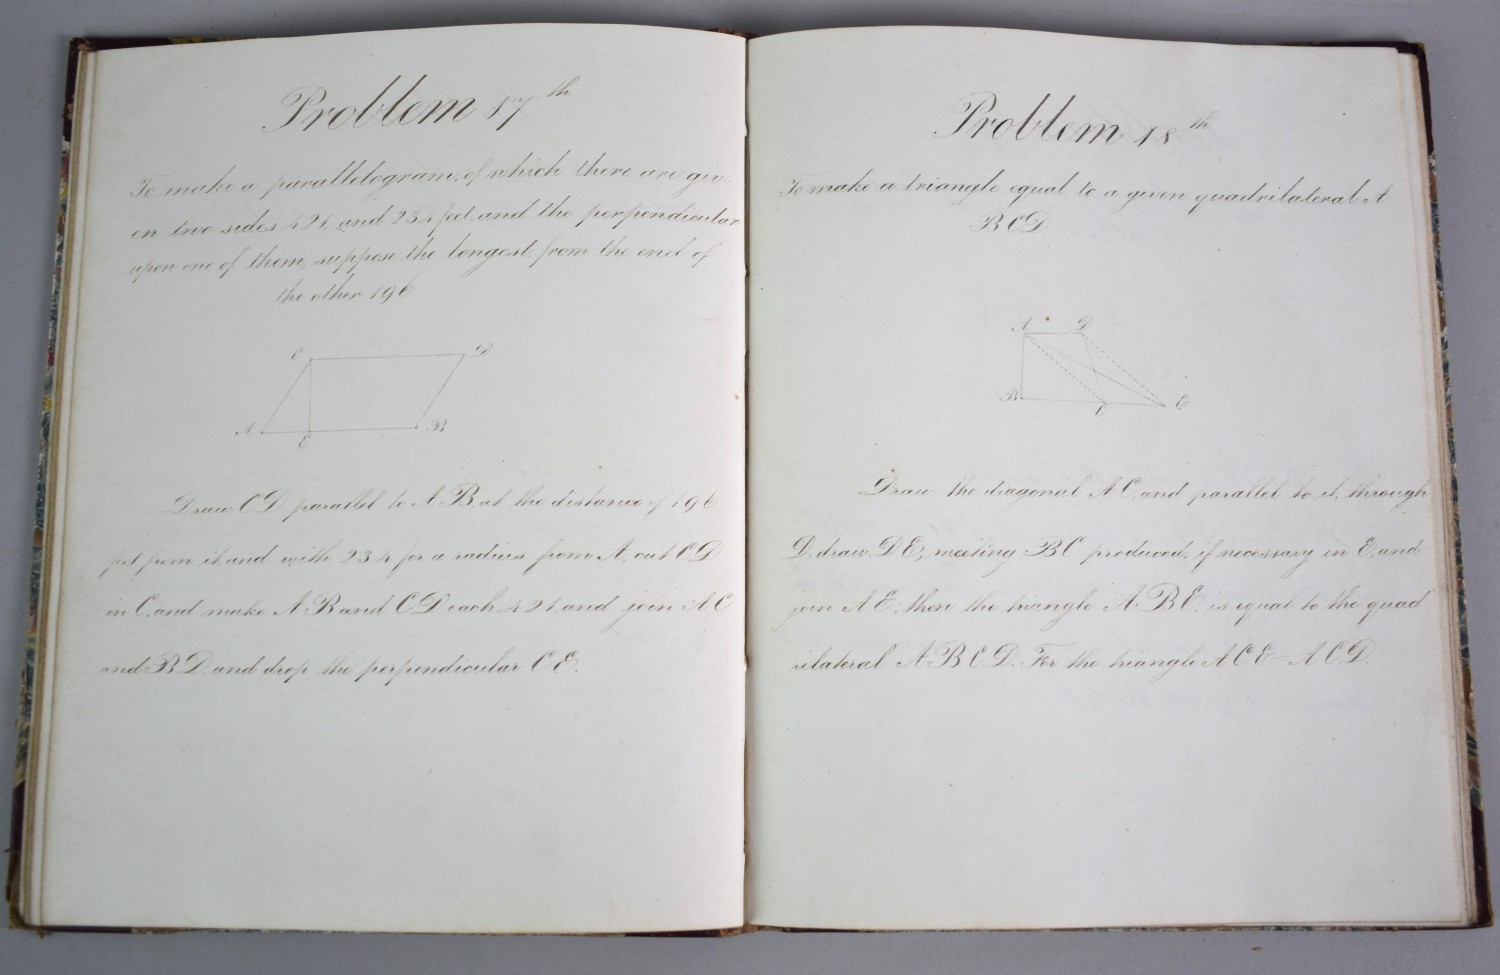 Problem 17th
To make a parallelogram, of which there are giv-
en two sides 421, and 234 feet, and the perpendicular
upon one of them, suppose the longest, from the end of
the other 196
C D
A E B
Draw C D parallel to A B, at the distance of 196
feet from it, and with 234 for a radius from A, cut C D
in C, and make A B and C D each 421, and join A C
and B D and drop the perpendicular C E.
Problem 18th
To make a triangle equal to a given quadrilateral A
B C D
A D
B C E
Draw the diagonal A C, and parallel to it, through
D, draw D E, meeting B C produced, if necessary in E, and
join A E; then the triangle A B E, is equal to the quad
rilateral A B C D. For the triangle A C E = A C D.